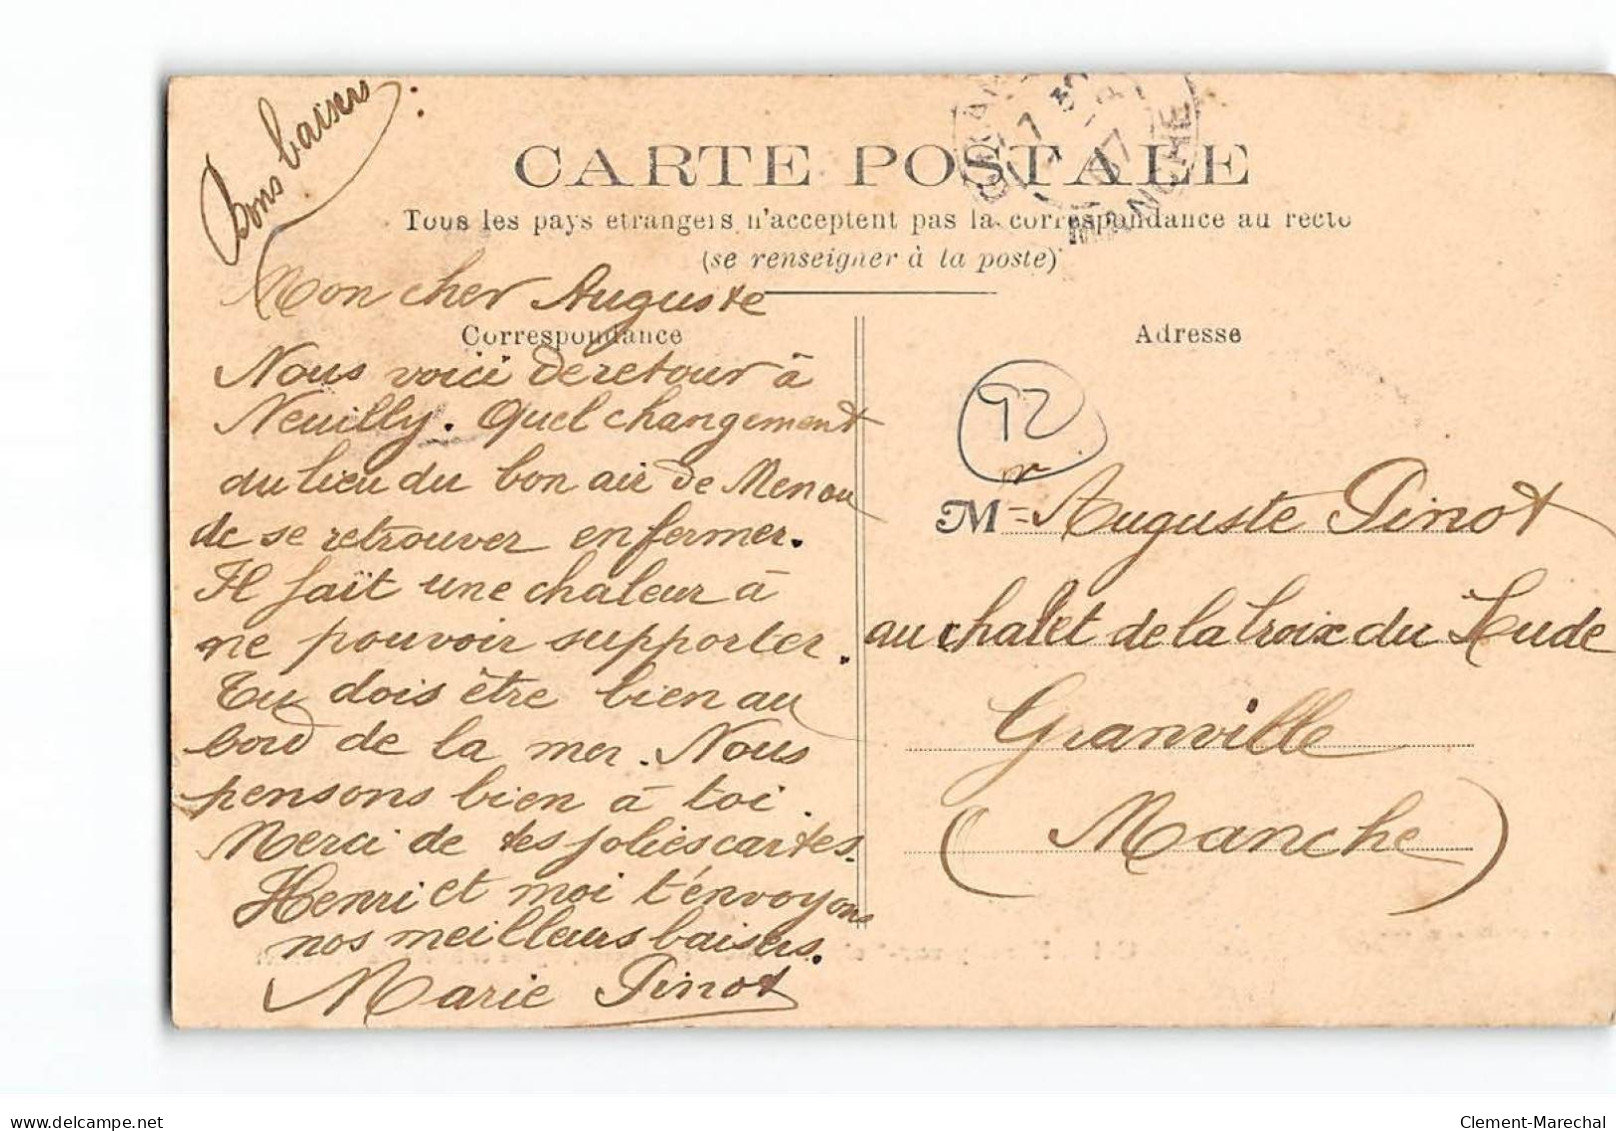 Bons baisers
CARTE POSTALE
Tous les pays etrangers n'acceptent pas la correspondance au recto
(se renseigner à la poste)
MANCHE
Mon cher Auguste
Correspondance
Nous voici de retour à
Neuilly. Quel changement
du lieu du bon air de Menou
de se retrouver enfermer.
Il fait une chaleur à
ne pouvoir supporter.
Tu dois être bien au
bord de la mer. Nous
pensons bien à toi.
Merci de tes jolies cartes.
Henri et moi t'envoyons
nos meilleurs baisers.
Marie Pinot
Adresse
92
Mr Auguste Pinot
au chalet de la Croix du Lude
Granville
(Manche)
delcampe.net
Clement-Marechal